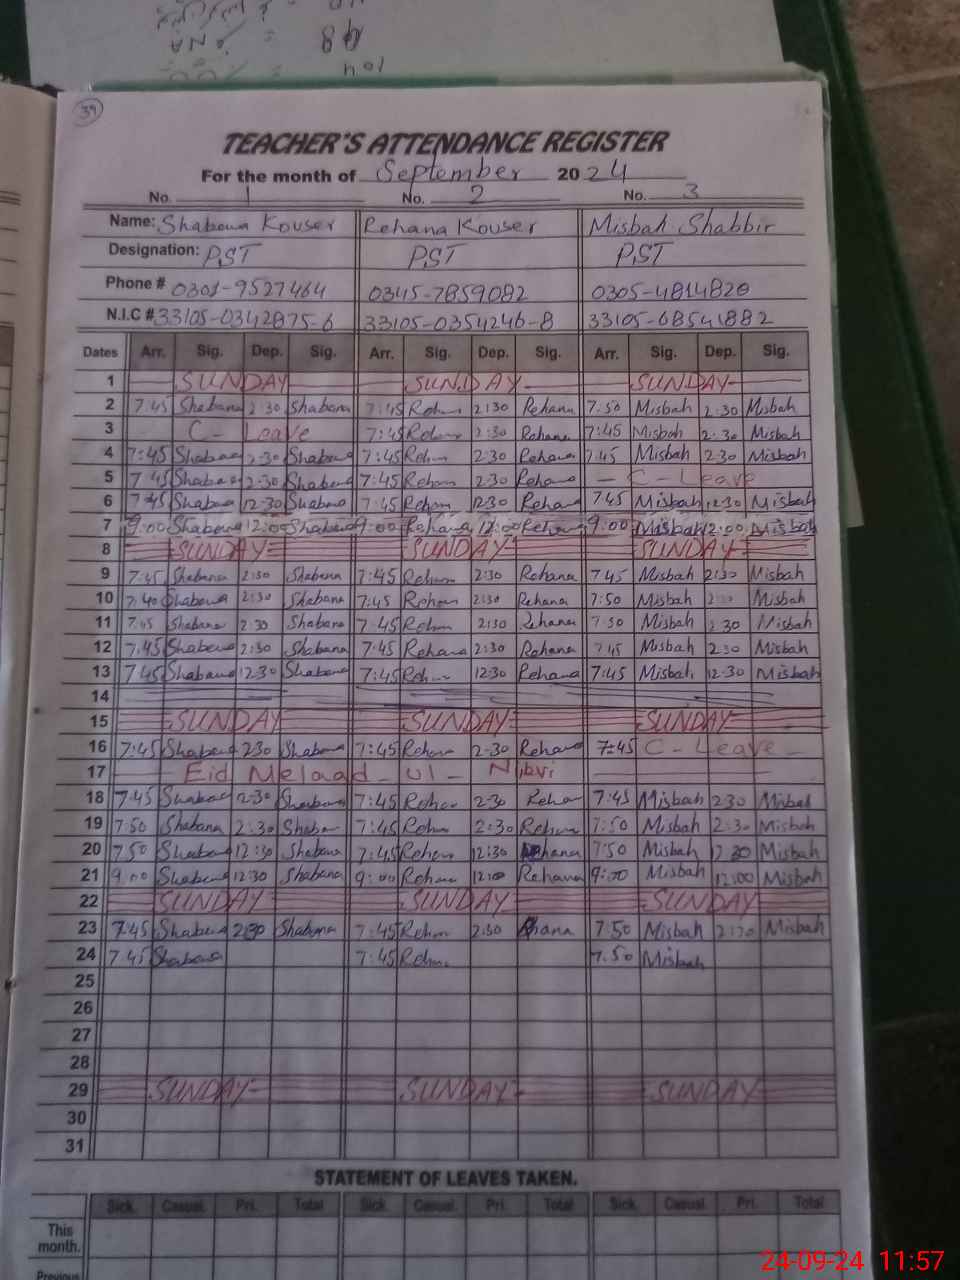 39
TEACHER'S ATTENDANCE REGISTER
For the month of September 2024
No. 1 No. 2 No. 3
Name: Shabana Kouser Rehana Kouser Misbah Shabbir
Designation: PST PST PST
Phone # 0301-9527464 0345-7859082 0305-4814820
N.I.C # 33105-0342875-6 33105-0354246-8 33105-68541882
Dates Arr. Sig. Dep. Sig. Arr. Sig. Dep. Sig. Arr. Sig. Dep. Sig.
1 SUNDAY SUNDAY SUNDAY
2 7:45 Shabana 2:30 Shabana 7:45 Rehan 2:30 Rehana 7:50 Misbah 2:30 Misbah
3 C- Leave 7:45 Rehan 2:30 Rehana 7:45 Misbah 2:30 Misbah
4 7:45 Shabana 2:30 Shabana 7:45 Rehan 2:30 Rehana 7:45 Misbah 2:30 Misbah
5 7:45 Shabana 2:30 Shabana 7:45 Rehan 2:30 Rehana - C - Leave
6 7:45 Shabana 12:30 Shabana 7:45 Rehan 12:30 Rehana 7:45 Misbah 12:30 Misbah
7 9:00 Shabana 12:00 Shabana 9:00 Rehana 12:00 Rehana 9:00 Misbah 12:00 Misbah
8 SUNDAY SUNDAY SUNDAY
9 7:45 Shabana 2:30 Shabana 7:45 Rehan 2:30 Rehana 7:45 Misbah 2:30 Misbah
10 7:40 Shabana 2:30 Shabana 7:45 Rehan 2:30 Rehana 7:50 Misbah Misbah
11 7:45 Shabana 2:30 Shabana 7:45 Rehan 2:30 Rehana 7:50 Misbah 2:30 Misbah
12 7:45 Shabana 2:30 Shabana 7:45 Rehana 2:30 Rehana 7:45 Misbah 2:30 Misbah
13 7:45 Shabana 12:30 Shabana 7:45 Rehan 12:30 Rehana 7:45 Misbah 12:30 Misbah
14
15 SUNDAY SUNDAY SUNDAY
16 7:45 Shabana 2:30 Shabana 7:45 Rehan 2:30 Rehana 7:45 C - Leave -
17 Eid Melaad - ul - Nibvi
18 7:45 Shabana 2:30 Shabana 7:45 Rehan 2:30 Rehan 7:45 Misbah 2:30 Misbah
19 7:50 Shabana 2:30 Shaban 7:45 Rehan 2:30 Rehan 7:50 Misbah 2:30 Misbah
20 7:50 Shabana 12:30 Shabana 7:45 Rehan 12:30 Rehana 7:50 Misbah 12:30 Misbah
21 9:00 Shabana 12:30 Shabana 9:00 Rehan 12:00 Rehana 9:00 Misbah 12:00 Misbah
22 SUNDAY SUNDAY SUNDAY
23 7:45 Shabana 2:30 Shabana 7:45 Rehan 2:30 7:50 Misbah 2:30 Misbah
24 7:45 Shabana 7:45 Rehan 7:50 Misbah
25
26
27
28
29 SUNDAY SUNDAY SUNDAY
30
31
STATEMENT OF LEAVES TAKEN.
Sick. Casual. Pri. Total Sick. Casual. Pri. Total Sick. Casual. Pri. Total
This
month.
Previous
24-09-24 11:57